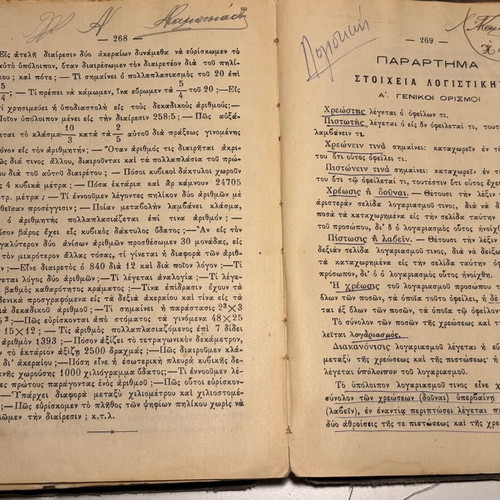 268
Εἰς ἀτελῆ διαίρεσιν δύο ἀκεραίων δυνάμεθα νὰ εὑρίσκωμεν
αὐτὸ ὑπόλοιπον, ὅταν διαιρέσωμεν τὸν διαιρετέον διὰ τοῦ πηλί-
κου; καὶ πότε; — Τί σημαίνει ὁ πολλαπλασιασμὸς τοῦ 20 ἐπὶ
5/4; — Τί πρέπει νὰ κάμωμεν, ἵνα εὕρωμεν τὰ 5/4 τοῦ 20; — Εἰς
τί χρησιμεύει ἡ ὑποδιαστολὴ εἰς τοὺς δεκαδικοὺς ἀριθμούς; —
Ποῖον ὑπόλοιπον μένει εἰς τὴν διαίρεσιν 258:5; — Πῶς αὐξά-
εται τὸ κλάσμα 10/ κατὰ τὰ 2/5 αὐτοῦ διὰ πράξεως γινομένης
όνον εἰς τὸν ἀριθμητήν; — Ὅταν ἀριθμός τις διαιρῆται ἀκρι-
ῶς διά τινος ἄλλου, διαιροῦνται καὶ τὰ πολλαπλάσια τοῦ πρώ-
ου διὰ τοῦ αὐτοῦ διαιρέτου; — Πόσοι κυβικοὶ δάκτυλοι χωροῦν
4 κυβικὰ μέτρα; — Πόσα ἑκτάρια καὶ ἂρ κάμνουν 24705
τρ. μέτρα; — Τί ἐννοοῦμεν λέγοντες πηλίκον δύο ἀριθμῶν μὲ
θεῖσαν προσέγγισιν; — Ποίαν μεταβολὴν λαμβάνει κλάσμα,
ὁ ἀριθμητὴς πολλαπλασιάζεται ἐπί τινα ἀριθμόν; —
σον βάρος ἔχει εἷς κυβικὸς δάκτυλος ὕδατος; — Ἂν εἰς τὸν
γαλύτερον δύο ἀνίσων ἀριθμῶν προσθέσωμεν 30 μονάδας, εἰς
τὸν μικρότερον ἄλλας τόσας, τί γίνεται ἡ διαφορὰ τῶν ἀριθ-
ῶν; — Εἶνε διαιρετὸς ὁ 840 διὰ 12 καὶ διὰ ποῖον λόγον; — Τί
εται λόγος δύο ἀριθμῶν; — Τί λέγεται ἀναλογία; — Τί λέγε-
βαθμὸς καθαρότητος κράματος; — Τίνα ἐπίδρασιν ἔχουν τὰ
ενικὰ προσγραφόμενα εἰς τὰ δεξιὰ ἀκεραίου καὶ τίνα εἰς τὰ
δεκαδικοῦ ἀριθμοῦ; — Τί σημαίνει ἡ παράστασις 2³×3
²; — Πῶς εὑρίσκονται ἀπὸ στόματος τὰ γινόμενα 48×25
15×12; — Τίς ἀριθμὸς πολλαπλασιαζόμενος ἐπὶ 7 δίδει
ἀριθμὸν 1393; — Πόσον ἀξίζει τὸ τετραγωνικὸν δεκάμετρον,
ν τὸ ἑκτάριον ἀξίζῃ 2500 δραχμάς; — Πῶς διαιροῦμεν κλά-
δι' ἀκεραίου; — Πόση εἶνε ἡ ἐσωτερικὴ πλευρὰ κυβικῆς δε-
ενῆς χωρούσης 1000 χιλιόγραμμα ὕδατος; — Τί ἐννοοῦμεν λέ-
ες πρώτους παράγοντας ἑνὸς ἀριθμοῦ; — Πῶς οὗτοι εὑρίσκον-
— Ὑπάρχει διαφορὰ μεταξὺ χιλιομέτρου καὶ χιλιοστομέ-
; — Πῶς εὑρίσκομεν τὸ πλῆθος τῶν ψηφίων πηλίκου χωρὶς νὰ
λέσωμεν τὴν διαίρεσιν; κ.τ.λ.
269
Λογιστική
ΠΑΡΑΡΤΗΜΑ
ΣΤΟΙΧΕΙΑ ΛΟΓΙΣΤΙΚΗ
Α'. ΓΕΝΙΚΟΙ ΟΡΙΣΜΟΙ
Χρεώστης λέγεται ὁ ὀφείλων τι.
Πιστωτὴς λέγεται ὁ εἰς ὃν ὀφείλεταί τι, τουτ
λαμβάνειν τι.
Χρεώνειν τινὰ σημαίνει: καταχωρεῖν ἐν τ
του ὅτι οὗτος ὀφείλει τι.
Πιστώνειν τινὰ σημαίνει: καταχωρεῖν ἐν τ
του ὅτι τῷ ὀφείλεταί τι, τουτέστιν ὅτι οὗτος ἔχε
Χρέωσις ἢ δοῦναι. — Θέτουσι τὴν λέξιν
ἀριστερὰν σελίδα λογαριασμοῦ τινος, διὰ νὰ δ
ποσὰ τὰ καταχωρημένα εἰς τὴν σελίδα ταύτην
τοῦ προσώπου, δι' ὃ ὁ λογαριασμὸς οὗτος ἠνοίχθη
Πίστωσις ἢ λαβεῖν. — Θέτουσι τὴν λέξιν
δεξιὰν σελίδα λογαριασμοῦ τινος, διὰ νὰ δείξω
τὰ καταχωρημένα εἰς τὴν σελίδα ταύτην ὀφ
πρόσωπον, δι' ὃ ὁ λογαριασμὸς οὗτος ἠνοίχθη.
Ἡ χρέωσις τοῦ λογαριασμοῦ προσώπου τ
ὅλων τῶν ποσῶν, τὰ ὁποῖα τοῦτο ὀφείλει, ἡ δὲ
ται ἐξ ὅλων τῶν ποσῶν, τὰ ὁποῖα τῷ ὀφείλοντ
Τὸ σύνολον τῶν ποσῶν τῆς χρεώσεως καὶ τ
λεῖται λογαριασμός.
Διακανόνισις λογαριασμοῦ λέγεται ἡ εὕ
μεταξὺ τῆς χρεώσεως καὶ τῆς πιστώσεως τ
λέγεται ὑπόλοιπον τοῦ λογαριασμοῦ.
Τὸ ὑπόλοιπον λογαριασμοῦ τινος εἶνε χ
σύνολον τῶν χρεώσεων (δοῦναι) ὑπερβαίνῃ
(λαβεῖν), ἐν ἐναντίᾳ περιπτώσει λέγεται π
δύο ἀθροίσεις τῆς τε πιστώσεως καὶ τῆς χρε